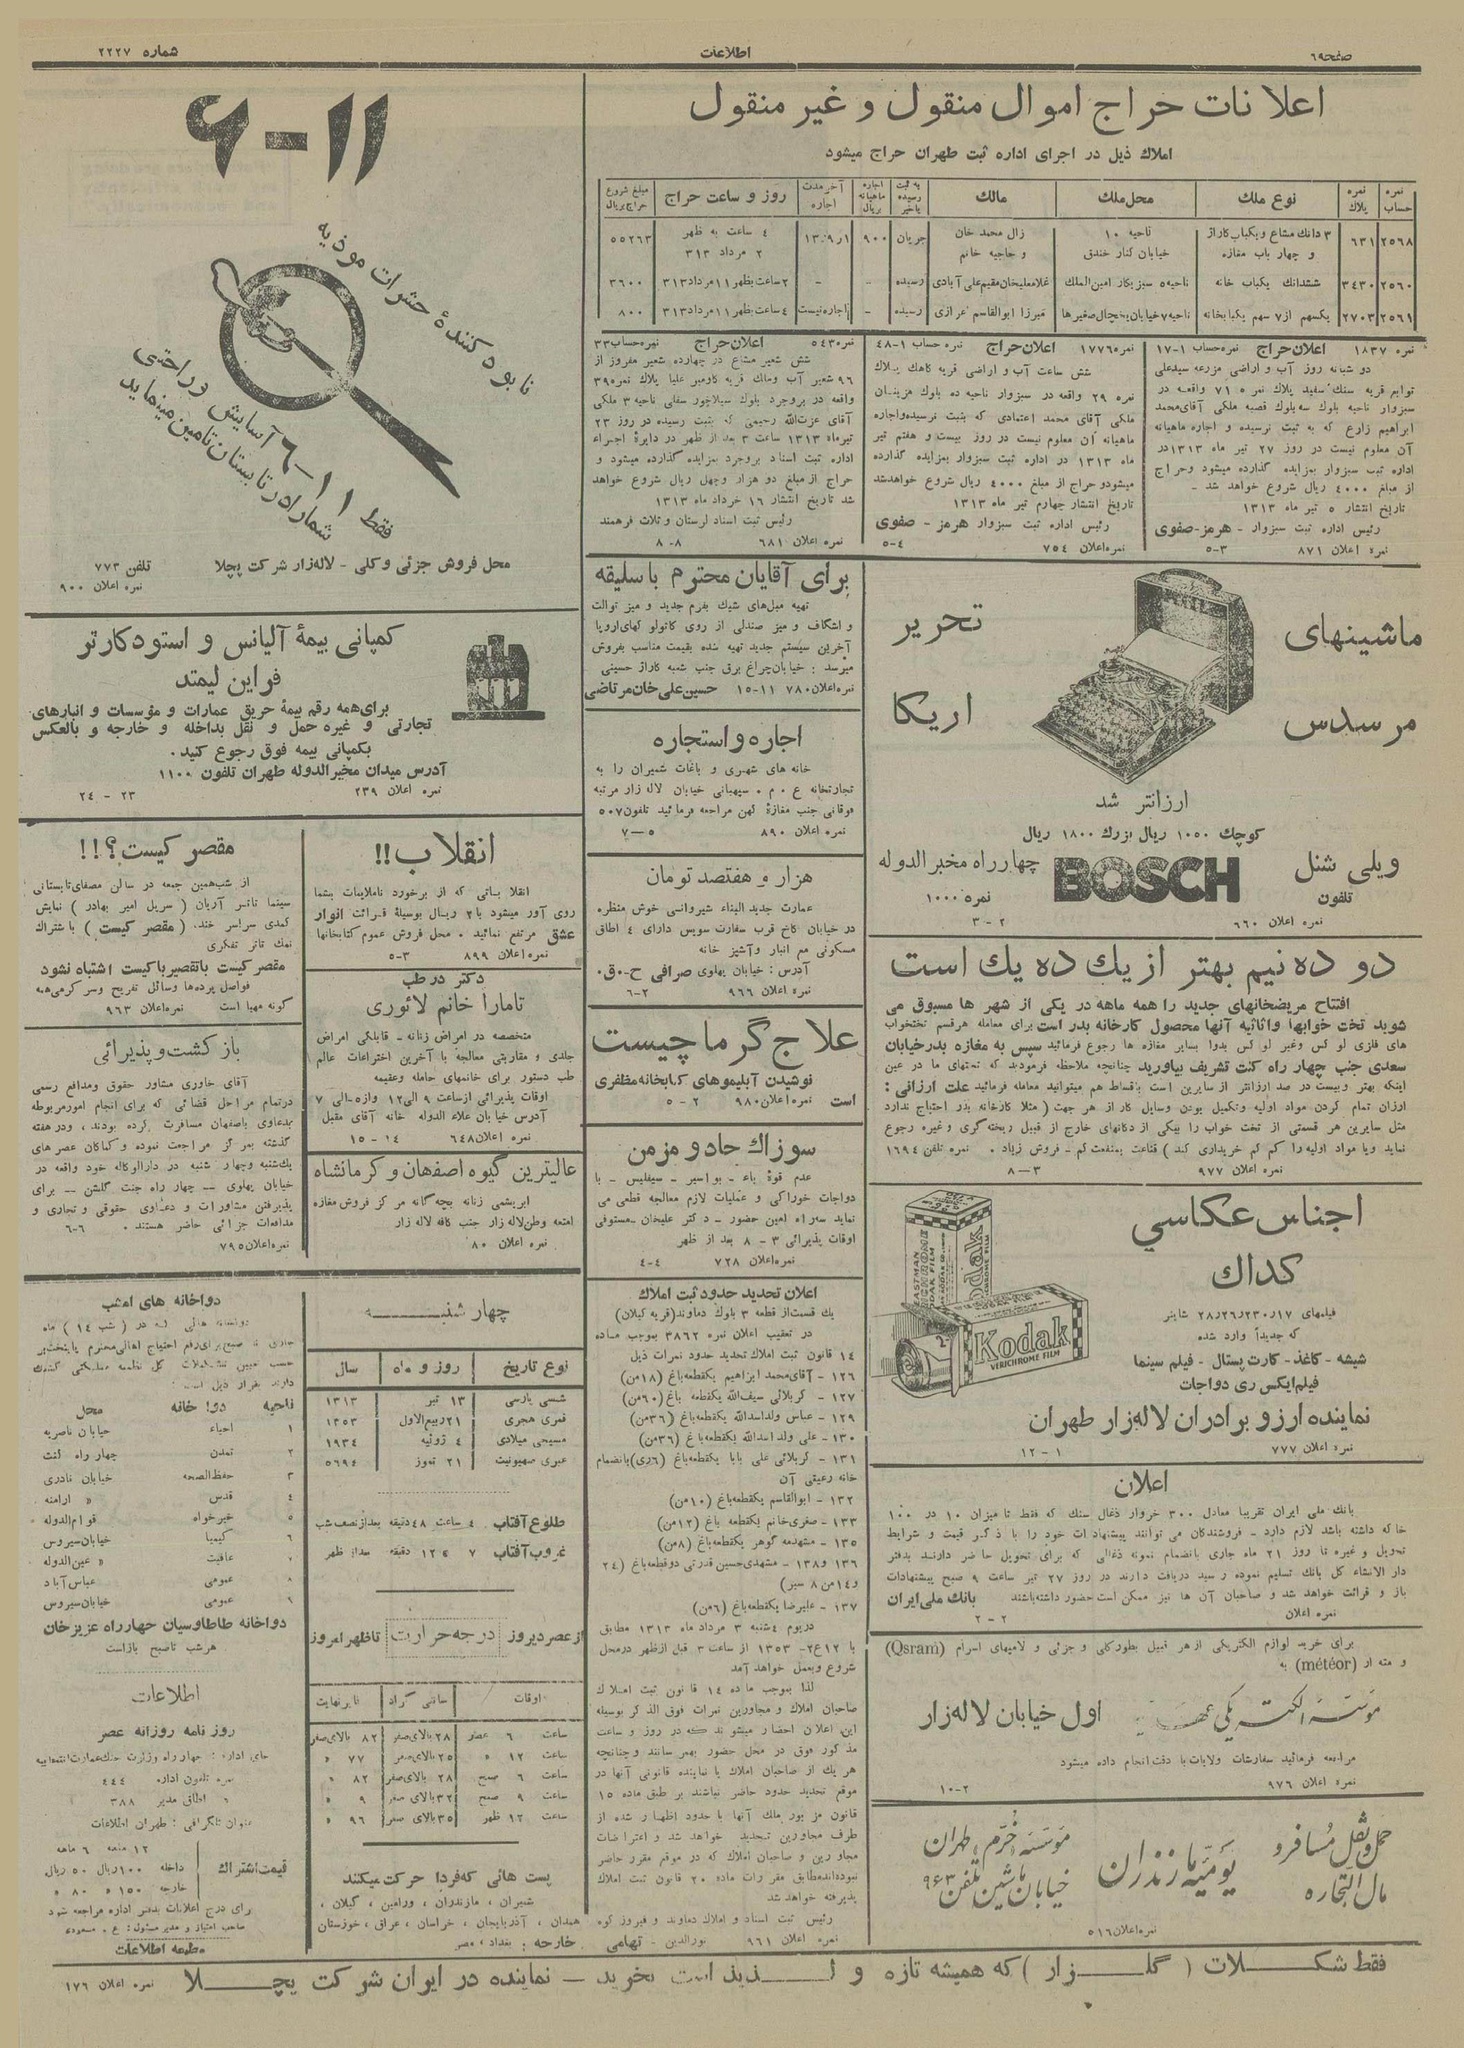 صفحه ٦٩
اطلاعات
شماره ۲۲۲۷
اعلانات حراج اموال منقول و غیر منقول
املاك ذیل در اجرای اداره ثبت طهران حراج میشود
نمره حساب
نمره پلاك
نوع ملك
محل ملك
مالك
به ثبت رسیده یا خیر
اجاره ماهیانه بریال
آخر مدت اجاره
روز و ساعت حراج
مبلغ شروع حراج بریال
۲٥٦۸ ٦۳۱ ۳ دانك مشاع و یکباب کاراژ و چهار باب مغازه ناحیه ۱۰ خیابان کنار خندق زال محمد خان و حاجیه خانم جریان ۹۰۰ ٤ ساعت به ظهر ۲ مرداد ۳۱۳ ٥٥۲٦۳
۲٥٦۰ ۳٤۳۰ ششدانك یکباب خانه ناحیه ٥ سبزیکار امین الملك غلامعلیخان مقیم علی آبادی رسیده - - ۲ ساعت بظهر ۱۱ مرداد ۳۱۳ ۳٦۰۰
۲٥٦۱ ۲۷۰۳ یکسهم از ۷ سهم یکبابخانه ناحیه ۷ خیابان یخچال صغیرها میرزا ابوالقاسم خرازی رسیده - اجاره نیست ٤ ساعت بظهر ۱۱ مرداد ۳۱۳ ۸۰۰
نمره ۱۸۳۷ اعلان حراج نمره حساب ۱-۱۷
دو شبانه روز آب و اراضی مزرعه سیدعلی
توابع قریه سنك سفید پلاك نمره ٥ ۷۱ واقعه در
سبزوار ناحیه بلوك سه بلوك قصبه ملکی آقای محمد
ابراهیم زارع که به ثبت نرسیده و اجاره ماهیانه
آن معلوم نیست در روز ۲۷ تیر ماه ۱۳۱۳ در
اداره ثبت سبزوار بمزایده گذارده میشود و حراج
از مبلغ ٤۰۰۰ ریال شروع خواهد شد -
تاریخ انتشار ٥ تیر ماه ۱۳۱۳
رئیس اداره ثبت سبزوار - هرمز - صفوی
نمره اعلان ۸۷۱ ۳-٥
نمره ۱۷۷٦ اعلان حراج نمره حساب ۱-٤۸
شش ساعت آب و اراضی قریه کاهك پلاك
نمره ۲۹ واقعه در سبزوار ناحیه ده بلوك مزینان
ملکی آقای محمد اعتمادی که بثبت نرسیده و اجاره
ماهیانه آن معلوم نیست در روز بیست و هفتم تیر
ماه ۱۳۱۳ در اداره ثبت سبزوار بمزایده گذارده
میشود و حراج از مبلغ ٤۰۰۰ ریال شروع خواهد شد
تاریخ انتشار چهارم تیر ماه ۱۳۱۳
رئیس اداره ثبت سبزوار هرمز - صفوی
نمره اعلان ۷٥٤ ٤-٥
نمره ٥٤۳ اعلان حراج نمره حساب ۳۳
شش شعیر مشاع در چهارده شعیر مفروز از
۹٦ شعیر آب و ملك قریه کاومیر علیا پلاك نمره ۳۹
واقعه در بروجرد بلوك سیلاخور سفلی ناحیه ۳ ملکی
آقای عزت الله رحیمی که بثبت رسیده در روز ۲۳
تیرماه ۱۳۱۳ ساعت ۳ بعد از ظهر در دایرۀ اجراء
اداره ثبت اسناد بروجرد بمزایده گذارده میشود و
حراج از مبلغ دو هزار و چهل ریال شروع خواهد
شد تاریخ انتشار ۱٦ خرداد ماه ۱۳۱۳
رئیس ثبت اسناد لرستان و ثلاث فرهمند
نمره اعلان ٦۸۱ ۸-۸
۱۱-۶
نابود کنندۀ حشرات موذیه
فقط ۱۱-٦ آسایش و راحتی
شما را در تابستان تامین مینماید
محل فروش جزئی و کلی - لاله زار شرکت پچلا تلفن ۷۷۳
نمره اعلان ۹۰۰
کمپانی بیمۀ آلیانس و استودکارتو
فراین لیمتد
برای همه رقم بیمۀ حریق عمارات و مؤسسات و انبارهای
تجارتی و غیره حمل و نقل بداخله و خارجه و بالعکس
بکمپانی بیمه فوق رجوع کنید.
آدرس میدان مخبرالدوله طهران تلفون ۱۱۰۰
نمره اعلان ۲۳۹ ۲۳ - ۲٤
برای آقایان محترم با سلیقه
تهیه مبل های شیك بفرم جدید و میز توالت
و اشکاف و میز صندلی از روی کاتولو کهای اروپا
آخرین سیستم جدید تهیه شده بقیمت مناسب بفروش
میرسد : خیابان چراغ برق جنب شعبه کاراژ حسینی
نمره اعلان ۷۸۰ ۱۱-۱٥ حسین علی خان مرتاضی
ماشینهای تحریر
مرسدس اریکا
ارزانتر شد
کوچك ۱۰٥۰ ریال بزرك ۱۸۰۰ ریال
ویلی شنل BOSCH چهارراه مخبرالدوله
تلفون نمره ۱۰۰۰
نمره اعلان ٦٦۰ ۲-۳
اجاره و استجاره
خانه های شهری و باغات شمیران را به
تجارتخانه ع . م . سیهبانی خیابان لاله زار مرتبه
فوقانی جنب مغازۀ لهن مراجعه فرمائید تلفون ٥۰۷
نمره اعلان ۸۹۰ ٥-۷
هزار و هفتصد تومان
عمارت جدید البناء شیروانی خوش منظره
در خیابان کاخ قرب سفارت سویس دارای ٤ اطاق
مسکونی مع انبار و آشپز خانه
آدرس : خیابان پهلوی صرافی ح-ق۰
نمره اعلان ۹٦٦ ۲-٦
انقلاب!!
انقلا باتی که از برخورد ناملایمات بشما
روی آور میشود با ۲ ریال بوسیلۀ قرائت انوار
عشق مرتفع نمائید . محل فروش عموم کتابخانها
نمره اعلان ۸۹۹ ۳-٥
مقصر کیست؟!!
از شب همین جمعه در سالن مصفای تابستانی
سینما تاتر آریان ( سریل امیر بهادر ) نمایش
کمدی سراسر خنده ( مقصر کیست ) با شتراك
نمك تاتر تفکری
مقصر کیست با تقصیر با کیست اشتباه نشود
فواصل پرده ها وسائل تفریح و سر گرمی همه
گونه مهیا است نمره اعلان ۹٦۳
دکتر در طب
تامارا خانم لائوری
متخصصه در امراض زنانه - قابلگی امراض
جلدی و مقاربتی معالجه با آخرین اختراعات عالم
طب دستور برای خانمهای حامله و عقیمه
اوقات پذیرائی از ساعت ۹ الی ۱۲ و از ٥ الی ۷
آدرس خیابان علاء الدوله خانه آقای مقبل
نمره اعلان ٦٤۸ ۱٤-۱٥
بازگشت و پذیرائی
آقای خاوری مشاور حقوق و مدافع رسمی
در تمام مراحل قضائی که برای انجام امور مربوطه
بدعاوی باصفهان مسافرت کرده بودند ، در هفته
گذشته بمرکز مراجعت نموده و کماکان عصر های
یك شنبه و چهار شنبه در دارالوکاله خود واقعه در
خیابان پهلوی - چهار راه جنت گلشن - برای
پذیرفتن مشاورات و دعاوی حقوقی و تجاری و
مدافعات جزائی حاضر هستند . ٦-٦
نمره اعلان ۷۹٥
عالیترین گیوه اصفهان و کرمانشاه
ابریشمی زنانه بچه گانه مرکز فروش مغازه
امتعه وطن لاله زار جنب کافه لاله زار
نمره اعلان ۸۰
علاج گرما چیست
نوشیدن آبلیموهای کتابخانه مظفری
است نمره اعلان ۹۸۰ ۲-٥
سوزاك حاد و مزمن
عدم قوۀ باء - بواسیر - سیفلیس - با
دواجات خوراکی و عملیات لازم معالجه قطعی می
نماید سه راه امین حضور - دکتر علیخان - مستوفی
اوقات پذیرائی ۳ - ۸ بعد از ظهر
نمره اعلان ۷۲۸ ٤-٤
دو ده نیم بهتر از یك ده یك است
افتتاح مریضخانهای جدید را همه ماهه در یکی از شهر ها مسبوق می
شوید تخت خوابها و اثاثیه آنها محصول کارخانه بدر است برای معامله هر قسم تختخواب
های فلزی لوکس و غیر لوکس بدوا بسایر مغازه ها رجوع فرمائید سپس به مغازه بدر خیابان
سعدی جنب چهار راه کنت تشریف بیاورید چنانچه ملاحظه فرمودید که تختهای ما در عین
اینکه بهتر و بیست در صد ارزانتر از سایرین است باقساط هم میتوانید معامله فرمائید علت ارزانی :
ارزان تمام کردن مواد اولیه و تکمیل بودن وسایل کار از هر جهت ( مثلا کارخانه بدر احتیاج ندارد
مثل سایرین هر قسمتی از تخت خواب را بیکی از دکانهای خارج از قبیل ریخته گری و غیره رجوع
نماید و یا مواد اولیه را کم کم خریداری کند ) قناعت بمنفعت کم - فروش زیاد . نمره تلفن ۱٦۹٤
نمره اعلان ۹۷۷ ۳-۸
اجناس عکاسی
کداك
فیلمهای ۱۷ر۲۳۰ر۲٦ر۲۸ شاینر
که جدیداً وارد شده
شیشه - کاغذ - کارت پستال - فیلم سینما
فیلم ایکس ری دواجات
نماینده ارزو برادران لاله زار طهران
نمره اعلان ۷۷۷ ۱-۱۲
EASTMAN
Kodak
VERICHROME FILM
اعلان
بانك ملی ایران تقریبا معادل ۳۰۰ خروار ذغال سنك که فقط تا میزان ۱۰ در ۱۰۰
خاکه داشته باشد لازم دارد - فروشندگان می توانند پیشنهادات خود را با ذکر قیمت و شرایط
تحویل و غیره تا روز ۲۱ ماه جاری بانضمام نمونه ذغالی که برای تحویل حاضر دارند بدفتر
دار الانشاء کل بانك تسلیم نموده رسید دریافت دارند در روز ۲۷ تیر ساعت ۹ صبح پیشنهادات
باز و قرائت خواهد شد و صاحبان آن ها نیز ممکن است حضور داشته باشند بانك ملی ایران
نمره اعلان ۲-۲
برای خرید لوازم الکتریکی از هر قبیل بطور کلی و جزئی و لامپهای اسرام (Qsram)
و مته ار (météor) به
مؤسسه الکتریکی اول خیابان لاله زار
مراجعه فرمائید سفارشات ولایات با دقت انجام داده میشود
نمره اعلان ۹۷٦ ۲-۱۰
حمل و نقل مسافر و مال التجاره
یومیه مازندران
مؤسسه خرم طهران
خیابان ماشین تلفن ۹٦۳
نمره اعلان ٥۱٦
اعلان تحدید حدود ثبت املاك
یك قسمت از قطعه ۳ بلوك دماوند (قریه کیلان)
در تعقیب اعلان نمره ۳۸٦۲ بموجب ماده
۱٤ قانون ثبت املاك تحدید حدود نمرات ذیل
۱۲٦ - آقای محمد ابراهیم یکقطعه باغ (۱۸ من)
۱۲۷ - کربلائی سیف الله یکقطعه باغ (٦۰ من)
۱۲۹ - عباس ولد اسدالله یکقطعه باغ (۳٦ من)
۱۳۰ - علی ولد اسدالله یکقطعه باغ (۳٦ من)
۱۳۱ - کربلائی علی بابا یکقطعه باغ (٦ ری) بانضمام
خانه رعیتی آن
۱۳۲ - ابوالقاسم یکقطعه باغ (۱۰ من)
۱۳۳ - صغری خانم یکقطعه باغ (۱۲ من)
۱۳٥ - مشهدیه گوهر یکقطعه باغ (۸ من)
۱۳٦ و ۱۳۸ - مشهدی حسین قدرتی دو قطعه باغ (۲٤
و ۱٤ من ۸ سیر)
۱۳۷ - علیرضا یکقطعه باغ (٦ من)
در یوم ٤ شنبه ۳ مرداد ماه ۱۳۱۳ مطابق
با ۱۲ ع ۲ - ۱۳٥۳ از ساعت ۳ قبل از ظهر در محل
شروع و بعمل خواهد آمد
لذا بموجب ماده ۱٤ قانون ثبت املاك
صاحبان املاك و مجاورین نمرات فوق الذکر بوسیله
این اعلان احضار میشوند که در روز و ساعت
مذکور فوق در محل حضور بهم رسانند و چنانچه
هر یك از صاحبان املاك یا نماینده قانونی آنها در
موقع تحدید حدود حاضر نباشند بر طبق ماده ۱٥
قانون مزبور ملك آنها با حدود اظهار شده از
طرف مجاورین تحدید خواهد شد و اعتراضات
مجاورین و صاحبان املاك که در موقع مقرر حاضر
نبوده اند مطابق مقررات ماده ۲۰ قانون ثبت املاك
پذیرفته خواهد شد
رئیس ثبت اسناد و املاك دماوند و فیروز کوه
نمره اعلان ۹٦۱ نورالدین - تهامی
چهار شنبه
نوع تاریخ روز و ماه سال
شمسی پارسی ۱۳ تیر ۱۳۱۳
قمری هجری ۲۱ ربیع الاول ۱۳٥۳
مسیحی میلادی ٤ ژوئیه ۱۹۳٤
عبری صهیونیت ۲۱ تموز ٥٦۹٤
طلوع آفتاب ٤ ساعت ٤۸ دقیقه بعد از نصف شب
غروب آفتاب ۷ ۱۲ دقیقه بعد از ظهر
از عصر دیروز درجه حرارت تا ظهر امروز
اوقات سانتی گراد فارنهایت
ساعت ٦ عصر ۲۸ بالای صفر ۸۲ بالای صفر
ساعت ۱۲ » ۲٥ بالای صفر ۷۷ »
ساعت ٦ صبح ۲۸ بالای صفر ۸۲ »
ساعت ۹ صبح ۳۲ بالای صفر ۹ »
ساعت ۱۲ ظهر ۳٥ بالای صفر ۹٦ »
پست هائی که فردا حرکت میکنند
شمیران ، مازندران ، ورامین ، گیلان ،
همدان ، آذربایجان ، خراسان ، عراق ، خوزستان
خارجه : بغداد ، مصر
دواخانه های امشب
ناحیه دوا خانه محل
۱ احیاء خیابان ناصریه
۲ تمدن چهار راه کنت
۳ حفظ الصحه خیابان نادری
٤ قدس « ارامنه
٥ خیرخواه قوام الدوله
٦ کیمیا خیابان سیروس
۷ عافیت « عین الدوله
۸ عمومی عباس آباد
۹ عمومی خیابان سیروس
دواخانه طاطاوسیان چهارراه عزیزخان
هر شب تا صبح باز است
اطلاعات
روز نامه روزانه عصر
نمره تلفون اداره ٤٤٤
« اطاق مدیر ۳۸۸
عنوان تلگرافی : طهران اطلاعات
قیمت اشتراك
۱۲ ماهه ٦ ماهه
داخله ۱۰۰ ریال ٥۰ ریال
خارجه ۱٥۰ » ۸۰ »
برای درج اعلانات بدفتر اداره مراجعه شود
صاحب امتیاز و مدیر مسئول : ع . مسعودی
مطبعه اطلاعات
فقط شکلات ( گلزار ) که همیشه تازه و لذیذ است بخرید - نماینده در ایران شرکت پچلا نمره اعلان ۱۷٦